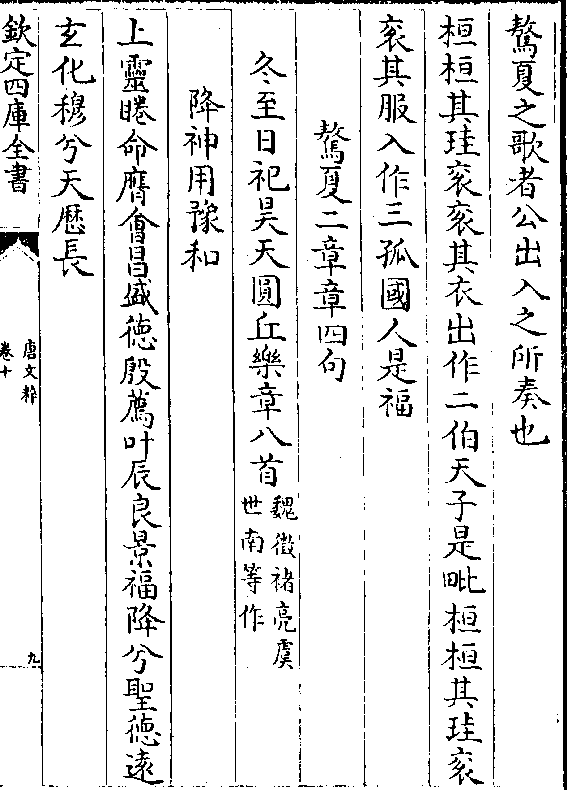 驁夏之歌者公出入之所奏也
桓桓其珪衮衮其衣出作二伯天子是毗桓桓其珪衮
衮其服入作三孤國人是福
驁夏二章章四句
冬至日祀昊天圓丘樂章八首魏徵褚亮虞
世南等作
降神用豫和
上靈睠命膺會昌盛德殷薦叶辰良景福降兮聖德遠
玄化穆兮天厯長
欽定四庫全書
唐文粹
卷十
九